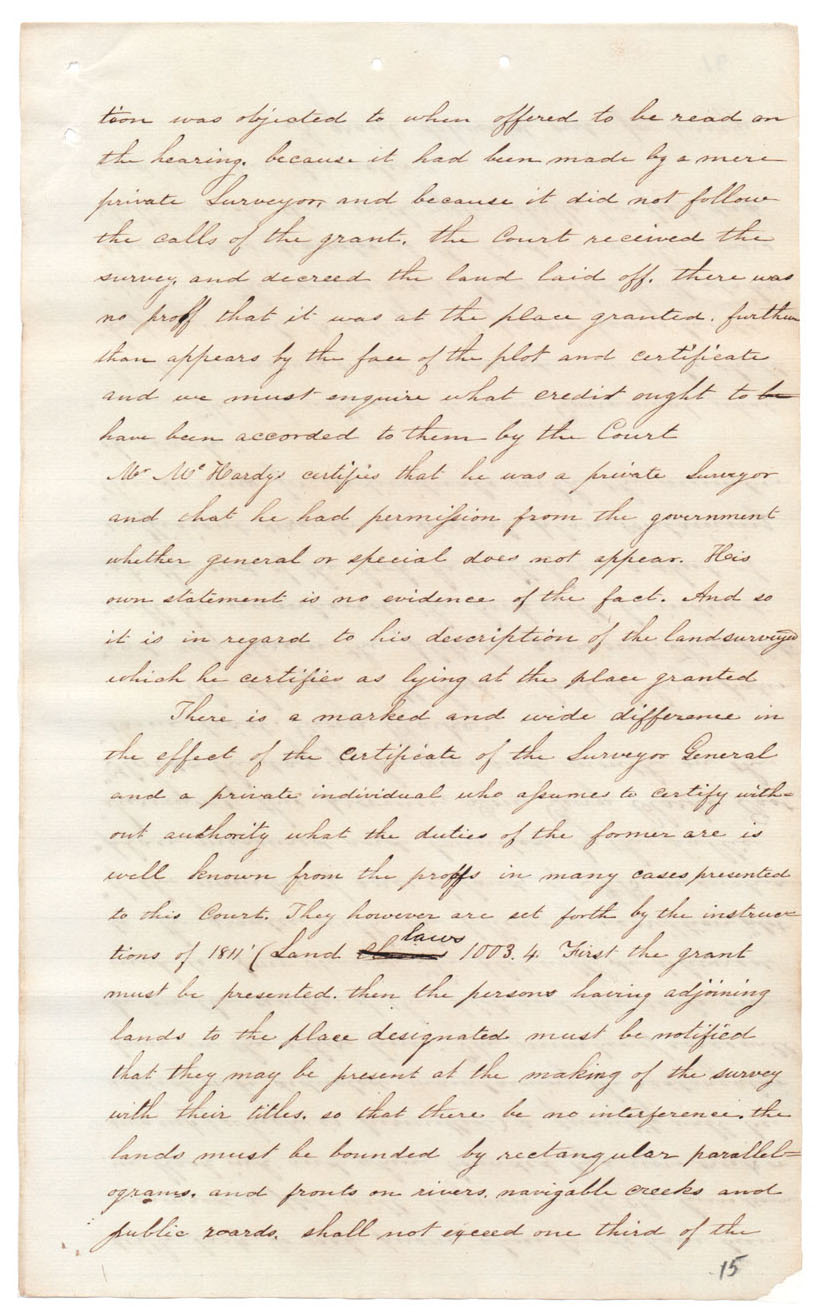 tion was objected to when offered to be read on
the hearing, because it had been made by a mere
private Surveyor, and because it did not follow
the calls of the grant. the Court received the
survey, and decreed the land laid off. there was
no proff that it was at the place granted, further
than appears by the face of the plot and certificate
and we must enquire what credit ought to be
have been accorded to them by the Court
Mr McHardys certifies that he was a private Surveyor
and that he had permission from the government
whether general or special does not appear. His
own statement is no evidence of the fact. And so
it is in regard to his description of the land surveyed
which he certifies as lying at the place granted
There is a marked and wide difference in
the effect of the certificate of the Surveyor General
and a private individual who assumes to certify with=
out authority what the duties of the former are is
well known from the proffs in many cases presented
to this Court. They however are set forth by the instruc=
laws
tions of 1811 (Land 1003.4. First the grant
must be presented. then the persons having adjoining
lands to the place designated must be notified
that they may be present at the making of the survey
with their titles, so that there be no interference, the
lands must be bounded by rectangular parallel=
ograms, and fronts on rivers, navigable creeks and
public roards, shall not exceed one third of the
15